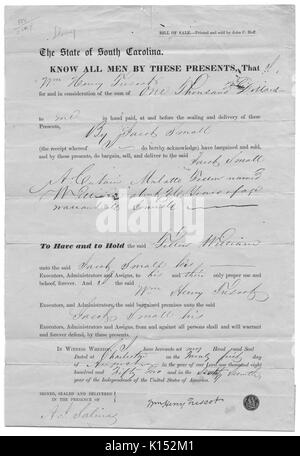 BILL OF SALE.—Printed and sold by John C. Hoff.
The State of South Carolina.
KNOW ALL MEN BY THESE PRESENTS, That I,
Wm Henry
for and in consideration of the sum of One Thousand Dollars
to me in hand paid, at and before the sealing and delivery of these
Presents,
By Jacob Small
(the receipt whereof do hereby acknowledge) have bargained and sold,
and by these presents, do bargain, sell, and deliver to the said
Jacob Small
A Certain Mulatto named
William about years of age
warranted
To Have and to Hold the said William
unto the said Jacob Small his
Executors, Administrators and Assigns, to his and their only proper use and
behoof, forever. And I the said
Wm Henry
Executors, and Administrators, the said bargained premises unto the said
Jacob Small his
Executors, Administrators and Assigns, from and against all persons shall and will warrant
and forever defend, by these presents.
In Witness Whereof, I have hereunto set my Hand and Seal
Dated at Charleston on the day
of in the year of our Lord one thousand eight
hundred and Fifty and in the Seventy
year of the Independence of the United States of America.
SIGNED, SEALED AND DELIVERED
IN THE PRESENCE OF
Wm Henry
alamy
K152M1